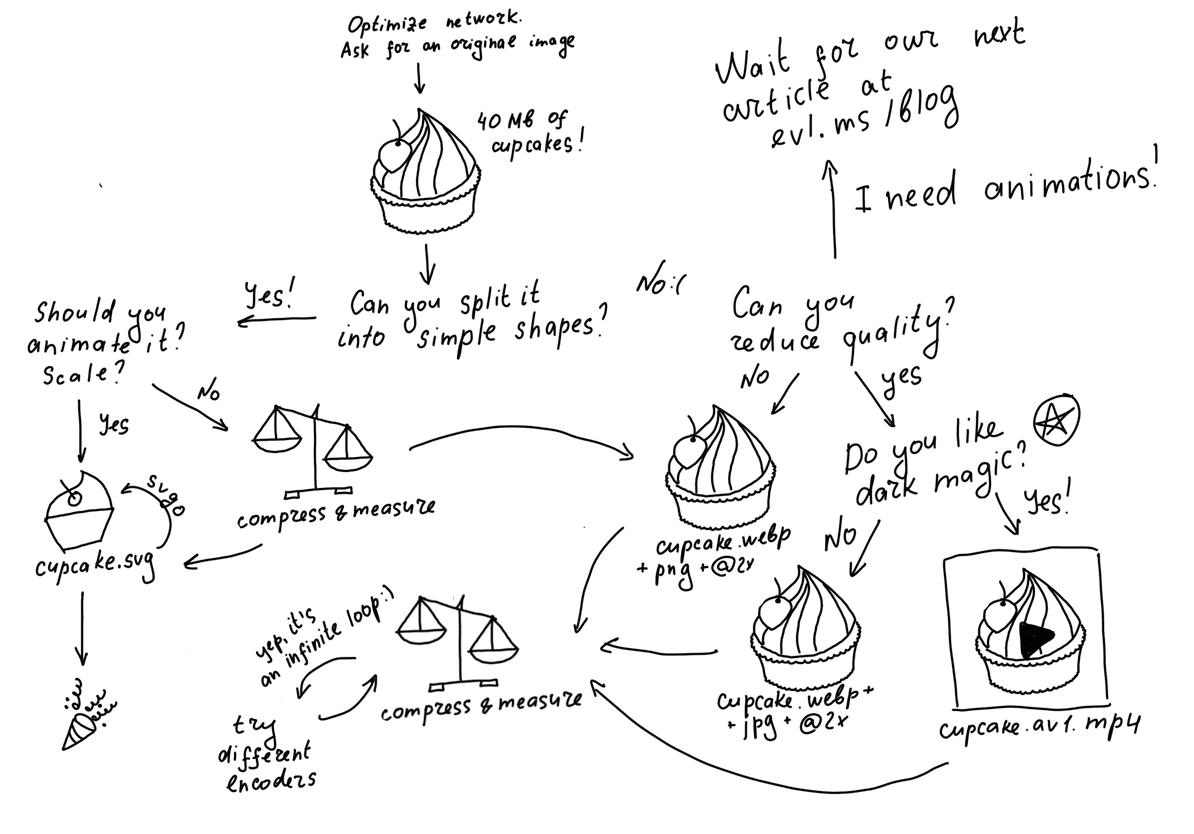 Optimize network.
Ask for an original image
40 Mb of
cupcakes!
Wait for our next
article at
evl.ms/blog
I need animations!
Can you split it
into simple shapes?
Yes!
No:(
Should you
animate it?
Scale?
Yes
No
svgo
cupcake.svg
compress & measure
Can you
reduce quality?
No
yes
cupcake.webp
+ png + @2x
Do you like
dark magic?
No
Yes!
cupcake.webp +
+ jpg + @2x
cupcake.av1.mp4
compress & measure
yep, it's
an infinite loop:)
try
different
encoders